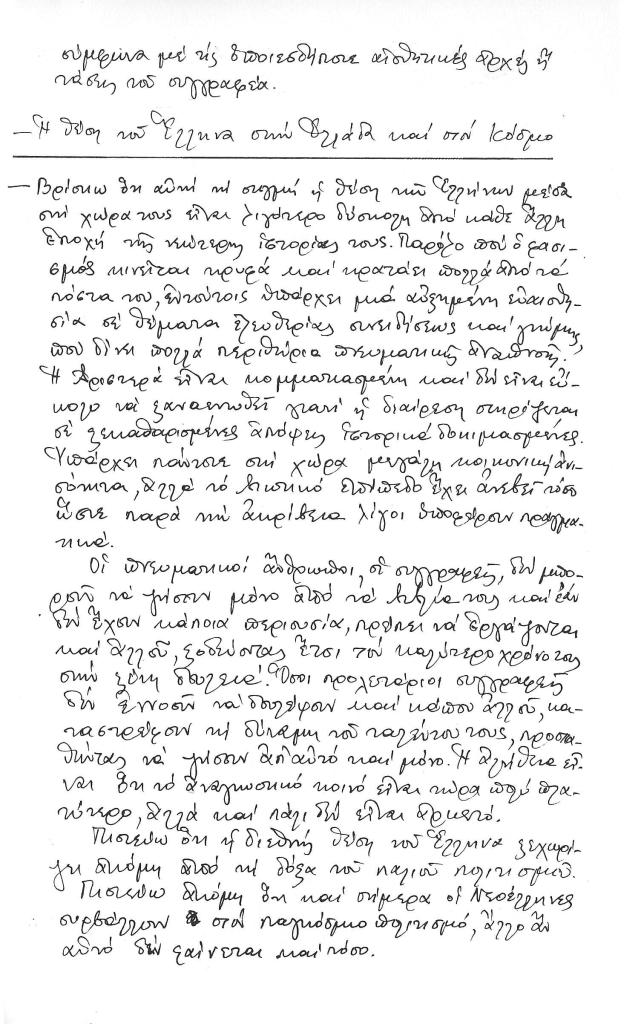 σύμφωνα μέ τίς ὁποιεσδήποτε αἰσθητικές ἀρχές ἤ
τάσεις τοῦ συγγραφέα.
— Ἡ θέση τοῦ Ἕλληνα στήν Ἑλλάδα καί στόν Κόσμο
— Βρίσκω ὅτι αὐτή τή στιγμή ἡ θέση τῶν Ἑλλήνων μέσα
στή χώρα τους εἶναι λιγότερο δύσκολη ἀπό κάθε ἄλλη
ἐποχή τῆς νεώτερης ἱστορίας τους. Παρόλο πού ὁ φασι-
σμός κινεῖται κρυφά καί κρατάει πολλά ἀπό τά
πόστα του, ἐντούτοις ὑπάρχει μιά αὐξημένη εὐαισθη-
σία σέ θέματα ἐλευθερίας συνειδήσεως καί γνώμης,
πού δίνει πολλά περιθώρια πνευματικῆς ἀναπνοῆς.
Ἡ Ἀριστερά εἶναι κομματιασμένη καί δέν εἶναι εὔ-
κολο νά ξαναενωθεῖ γιατί ἡ διαίρεση στηρίζεται
σέ ξεκαθαρισμένες ἀπόψεις ἱστορικά δοκιμασμένες.
Ὑπάρχει πάντοτε στή χώρα μεγάλη κοινωνική ἀνι-
σότητα, ἀλλά τό βιοτικό ἐπίπεδο ἔχει ἀνεβεῖ τόσο
ὥστε παρά τήν ἀκρίβεια λίγοι ὑποφέρουν πραγμα-
τικά.
Οἱ πνευματικοί ἄνθρωποι, οἱ συγγραφεῖς, δέν μπο-
ροῦν νά ζήσουν μόνο ἀπό τά βιβλία τους καί ἐάν
δέν ἔχουν κάποια περιουσία, πρέπει νά ἐργάζονται
καί ἀλλοῦ, ξοδεύοντας ἔτσι τόν καλύτερο χρόνο τους
στήν ξένη δουλειά. Ὅσοι προλετάριοι συγγραφεῖς
δέν ἐννοοῦν νά δουλέψουν καί κάπου ἀλλοῦ, κα-
ταστρέφουν τή δύναμη τοῦ ταλέντου τους, προσπα-
θώντας νά ζήσουν ἀπ' αὐτό καί μόνο. Ἡ ἀλήθεια εἶ-
ναι ὅτι τό ἀναγνωστικό κοινό εἶναι τώρα πολύ πλα-
τύτερο, ἀλλά καί πάλι δέν εἶναι ἀρκετό.
Πιστεύω ὅτι ἡ διεθνής θέση τοῦ Ἕλληνα ξεχωρί-
ζει ἀκόμη ἀπό τή δόξα τοῦ παλιοῦ πολιτισμοῦ.
Πιστεύω ἀκόμη ὅτι καί σήμερα οἱ Νεοέλληνες
συμβάλλουν στόν παγκόσμιο πολιτισμό, ἄλλο ἄν
αὐτό δέν φαίνεται καί τόσο.